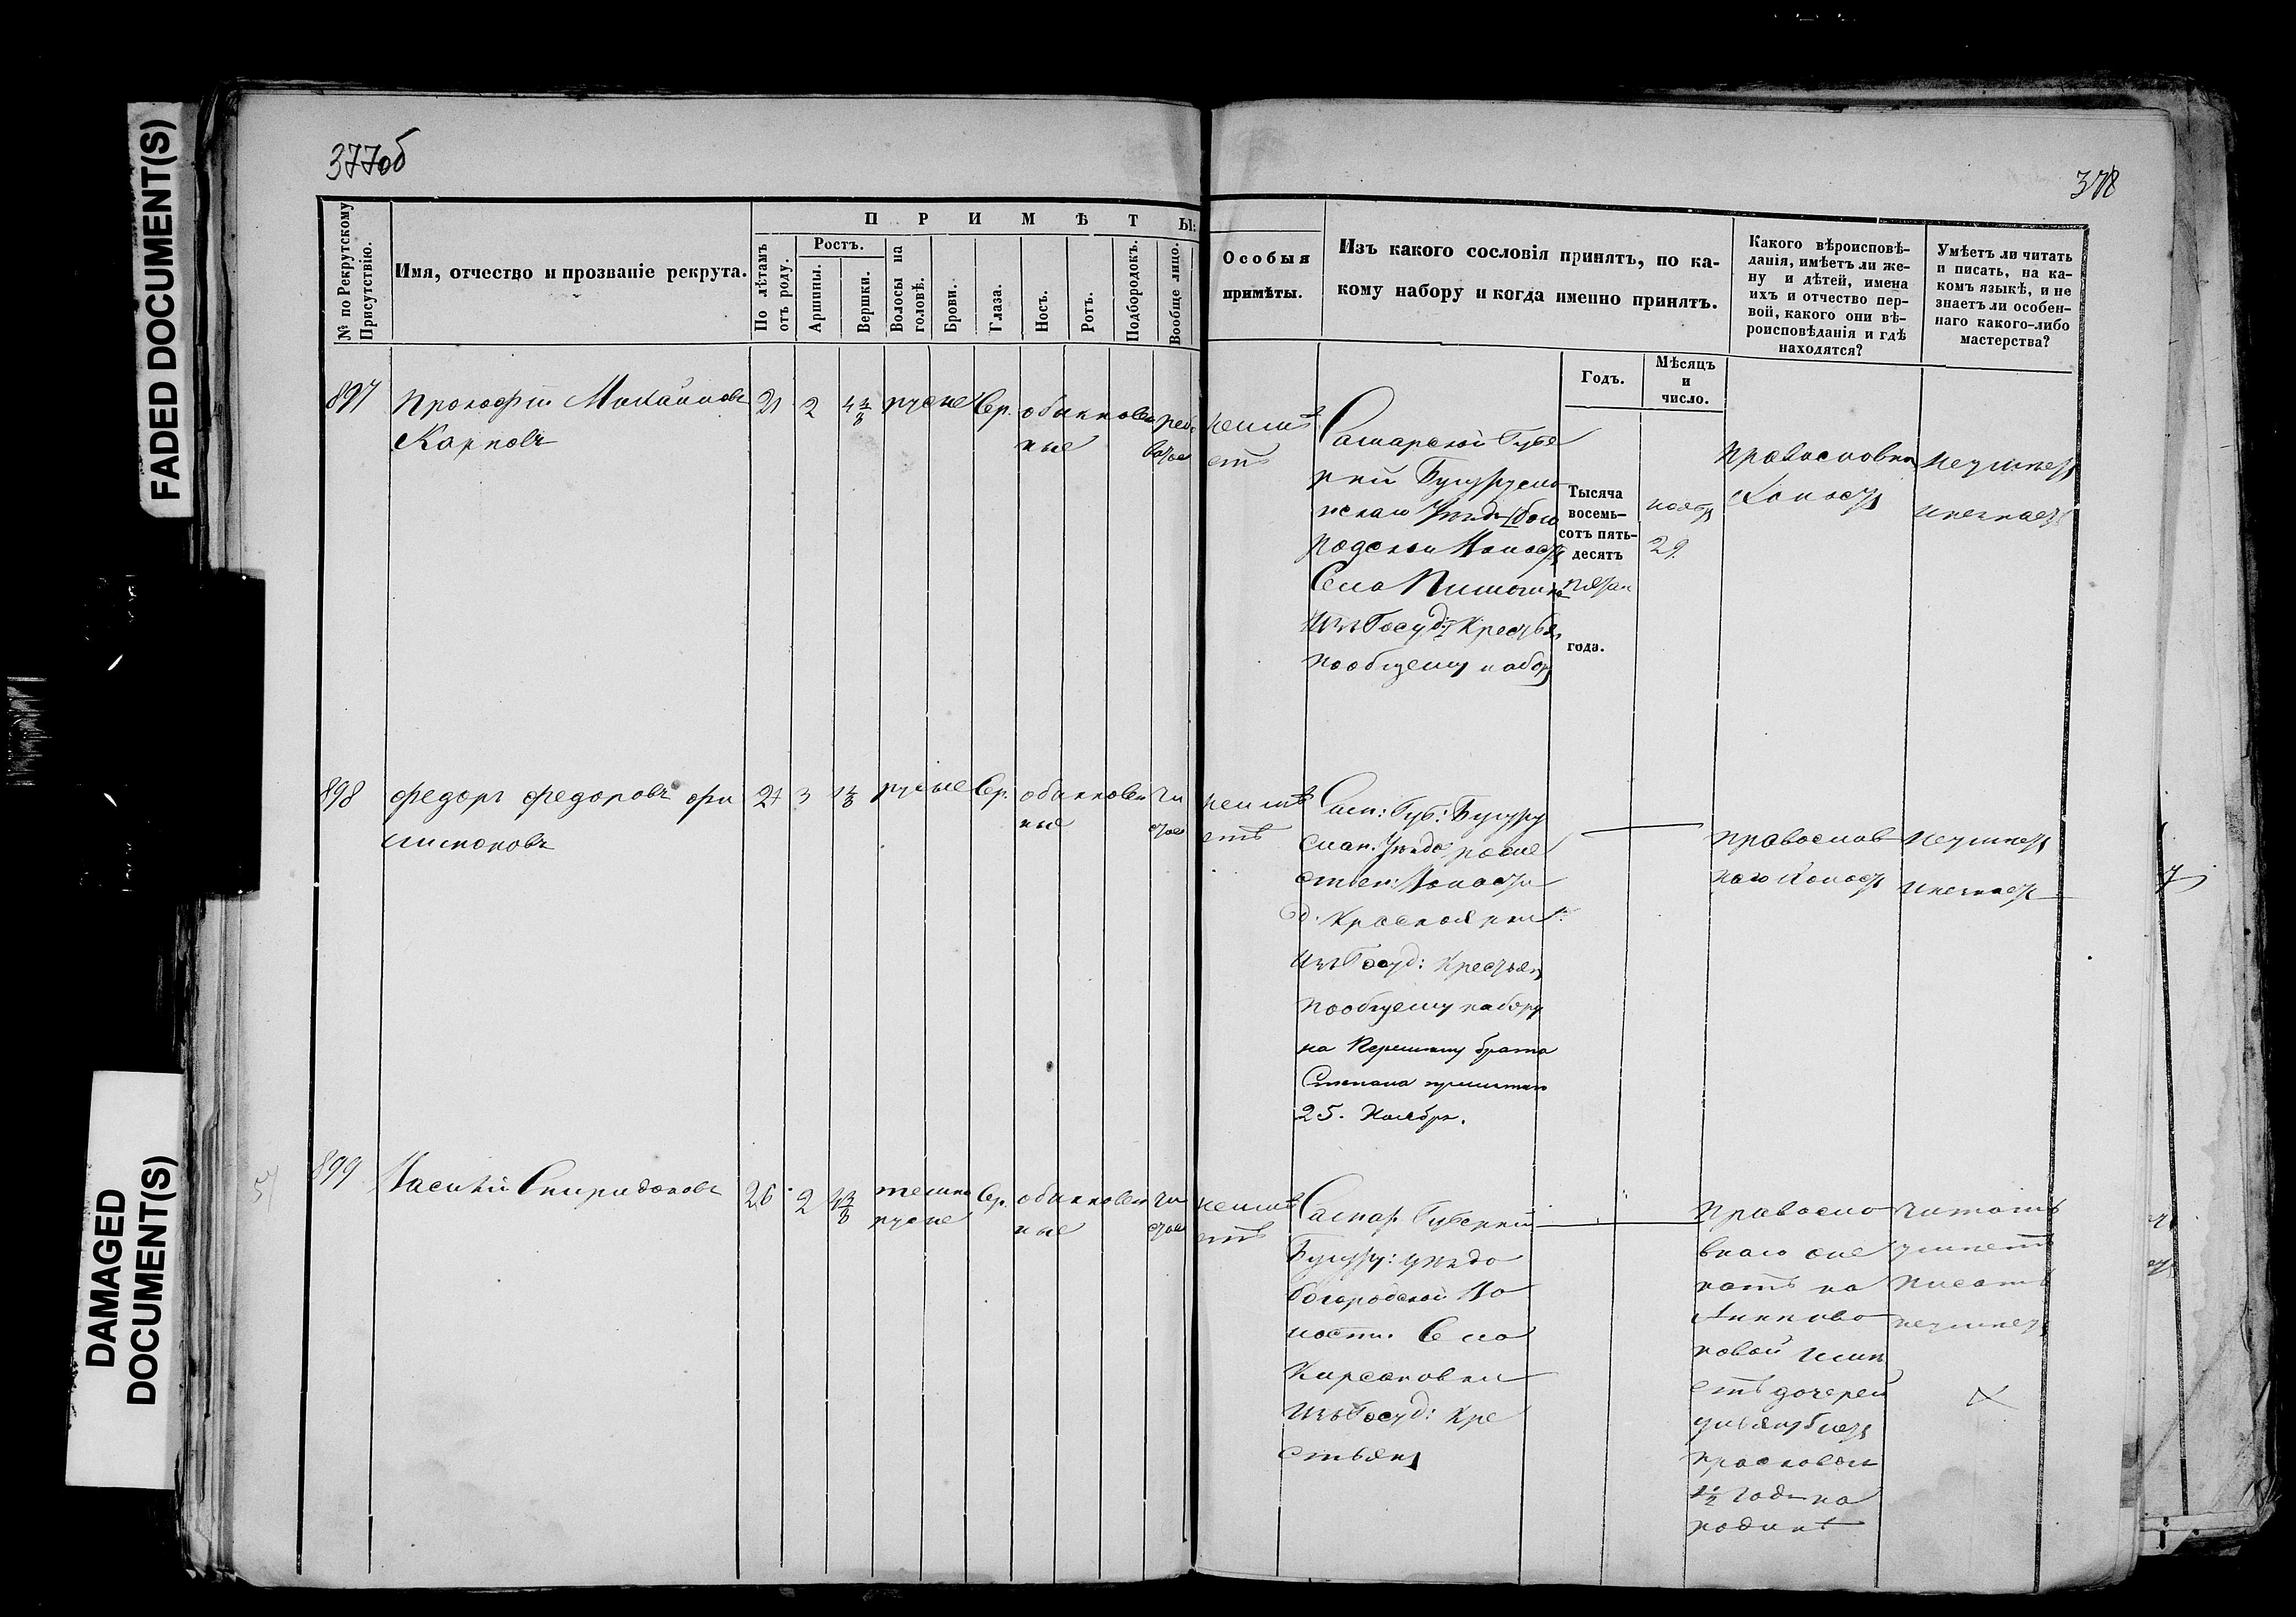 FADED DOCUMENT(S)
DAMAGED
DOCUMENT(S)
377об
378
№ по Рекрутскому
Присутствію.
Имя, отчество и прозваніе рекрута.
П Р И М Ѣ Т Ы:
По лѣтамъ
отъ роду.
Ростъ.
Аршины.
Вершки.
Волосы на
головѣ.
Брови.
Глаза.
Носъ.
Ротъ.
Подбородокъ.
Вообще лицо.
Особыя
примѣты.
Изъ какого сословія принятъ, по ка-
кому набору и когда именно принятъ.
Годъ.
Мѣсяцъ
и
число.
Какого вѣроисповѣ-
данія, имѣетъ ли же-
ну и дѣтей, имена
ихъ и отчество пер-
вой, какого они вѣ-
роисповѣданія и гдѣ
находятся?
Умѣетъ ли читать
и писать, на ка-
комъ языкѣ, и не
знаетъ ли особен-
наго какого-либо
мастерства?
897
Прокофій Михайловъ
Карповъ
21
2
русые
Сер.
обыкновен
ные
неимѣ
етъ
Самарской Губе
рніи Бугурусла
нскаго Уѣзда Бого
родской Волости
Села
Изъ Госуд: Крестьян
по общему набору
Тысяча
восемь-
сотъ пять-
десятъ
пятаго
года.
ноябр
29.
Православна
Холостъ
неумѣетъ
и незнаетъ
898
Федоръ Федоровъ Фи
лимоновъ
3
русые
Сер.
обыкновен
ные
чи
стое
неимѣ
етъ
Сам: Губ: Бугуру
слан. Уѣзда
Волости
д. Красной
Изъ Госуд: Крестьян
по общему набору
на брата
Степана
25. Ноября.
православ
наго Холостъ
неумѣетъ
и незнаетъ
899
Василій Спиридоновъ
26
2
темно
русые
Сер.
обыкновен
ные
чи
стое
неимѣ
етъ
Самар. Губерніи
Бугуру: уѣзда
Богородской Во
лости. Села
Кирсановки
Изъ Госуд: Кре
стьянъ
Правосла
внаго же
натъ на
имѣ
етъ дочерей
Прасковью
1½ года на
родинѣ
читать
умѣетъ
писать
неумѣетъ